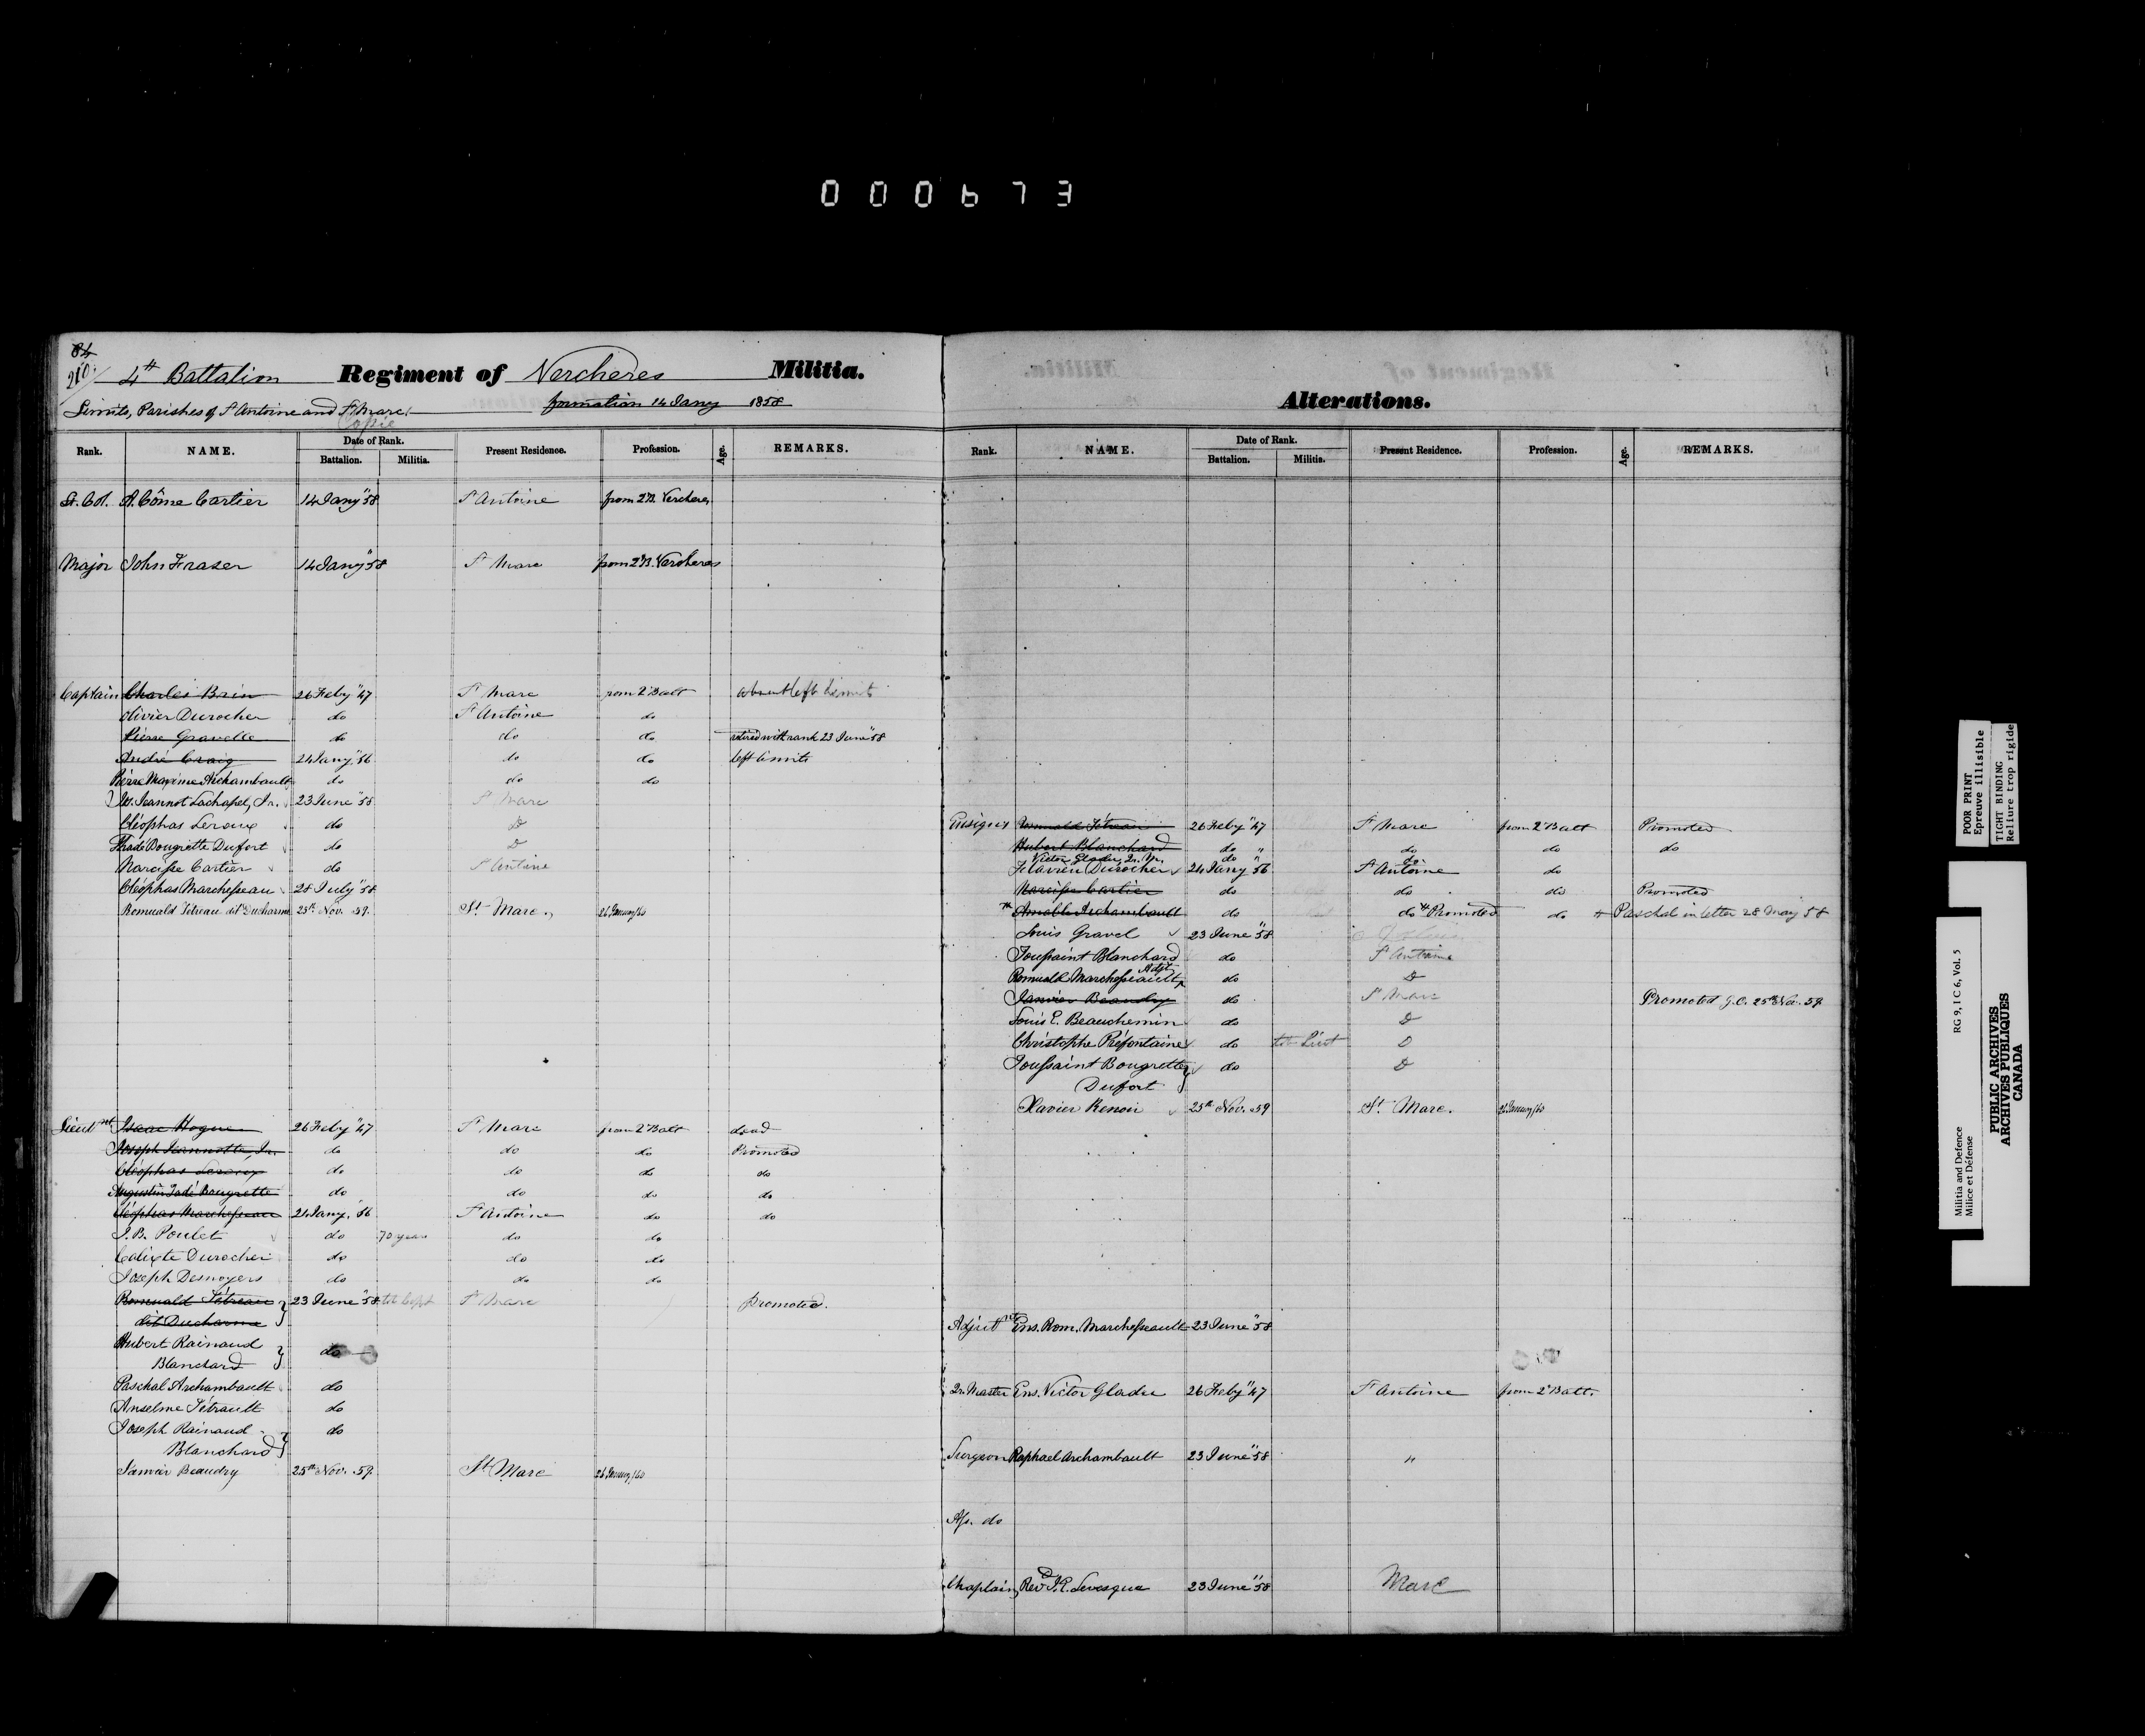 000673
84
210
4th Battalion Regiment of Vercheres Militia.
Limits, Parishes of St Antoine and St Marc. formation 14 Jany 1858
Copie
Rank. NAME. Date of Rank. Battalion. Militia. Present Residence. Profession. Age. REMARKS.
Lt. Col. A. Côme Cartier 14 Jany "58 St Antoine from 2d B. Vercheres
Major John Fraser 14 Jany "58 St Marc from 2d B. Vercheres
Captain Charles Brin 26 Feby "47 St Marc from 2d Batt absent left limits
Olivier Durocher do St Antoine do
Pierre Gravelle do do do retired with rank 23 June "58
André Craig 24 Jany "56 do do left limits
Pierre Maxime Archambault do do do
Js. Jeannot Lachapel, Jr. 23 June "58 St Marc
Cléophas Leroux do D
Thadé Bougrette Dufort do D
Narcisse Cartier do St Antoine
Cléophas Marchesseau 28 July "58
Romuald Tétreau dit Ducharme 25th Nov. 59. St Marc. 26 January/60
Lieutnt Isaac Hogue 26 Feby "47 St Marc from 2d Batt dead
Joseph Jeannotte, Jr. do do do Promoted
Cléophas Leroux do do do do
Augustin Tadé Bougrette do do do do
Cléophas Marchesseau 24 Jany. 56 St Antoine do do
J. B. Poulet do 70 years do do
Calixte Durocher do do do
Joseph Desnoyers do do do
Romuald Tétreau 23 June "58 St Marc promoted.
dit Ducharme
Hubert Rainaud
Blanchard do
Paschal Archambault do
Anselme Tétrault do
Joseph Rainaud do
Blanchard
Janvier Beaudry 25th Nov. 59. St Marc 26 January/60
Alterations.
Rank. NAME. Date of Rank. Battalion. Militia. Present Residence. Profession. Age. REMARKS.
Ensigns Romuald Tétreau 26 Feby "47 St Marc from 2d Batt Promoted
Hubert Blanchard do " do do do
Victor Gladu, Qr. Mr. do " do
Flavien Durocher 24 Jany 56 St Antoine do
Narcisse Cartier do do do Promoted
Amable Archambault do do Promoted do Paschal in letter 28 May 58
Louis Gravel 23 June "58
Toussaint Blanchard do St Antoine
Romuald Marchesseault Adjt do D
Janvier Beaudry do St Marc Promoted G.O. 25th Nov. 59
Louis E. Beauchemin do D
Christophe Préfontaine do D
Toussaint Bougrette do D
Dufort
Xavier Renoir 25th Nov. 59 St Marc. 26 January/60
Adjutnt Ens. Rom. Marchesseault 23 June "58
Qr. Master Ens. Victor Gladu 26 Feby "47 St Antoine from 2d Batt.
Surgeon Raphael Archambault 23 June "58 "
Ass. do
Chaplain Revd J. E. Levesque 23 June "58 Marc
POOR PRINT
Epreuve illisible
TIGHT BINDING
Reliure trop rigide
Militia and Defence RG 9, I C 6, Vol. 5
Milice et Défense
PUBLIC ARCHIVES
ARCHIVES PUBLIQUES
CANADA